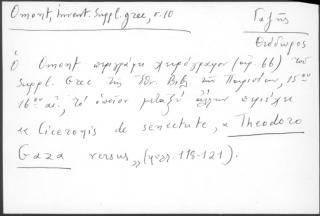 Omont, Invent. Suppl. grec, σ. 10
Γαζῆς
Θεόδωρος
Ὁ Omont περιγράφει χειρόγραφον (ἀρ. 66) τοῦ
Suppl. Grec τῆς Ἐθν. Βιβλ. τῶν Παρισίων, 15ου
16ου αἰ., τὸ ὁποῖον μεταξὺ ἄλλων περιέχει
« Ciceronis de senectute, a Theodoro
Gaza versus » (φύλλ. 118-121).